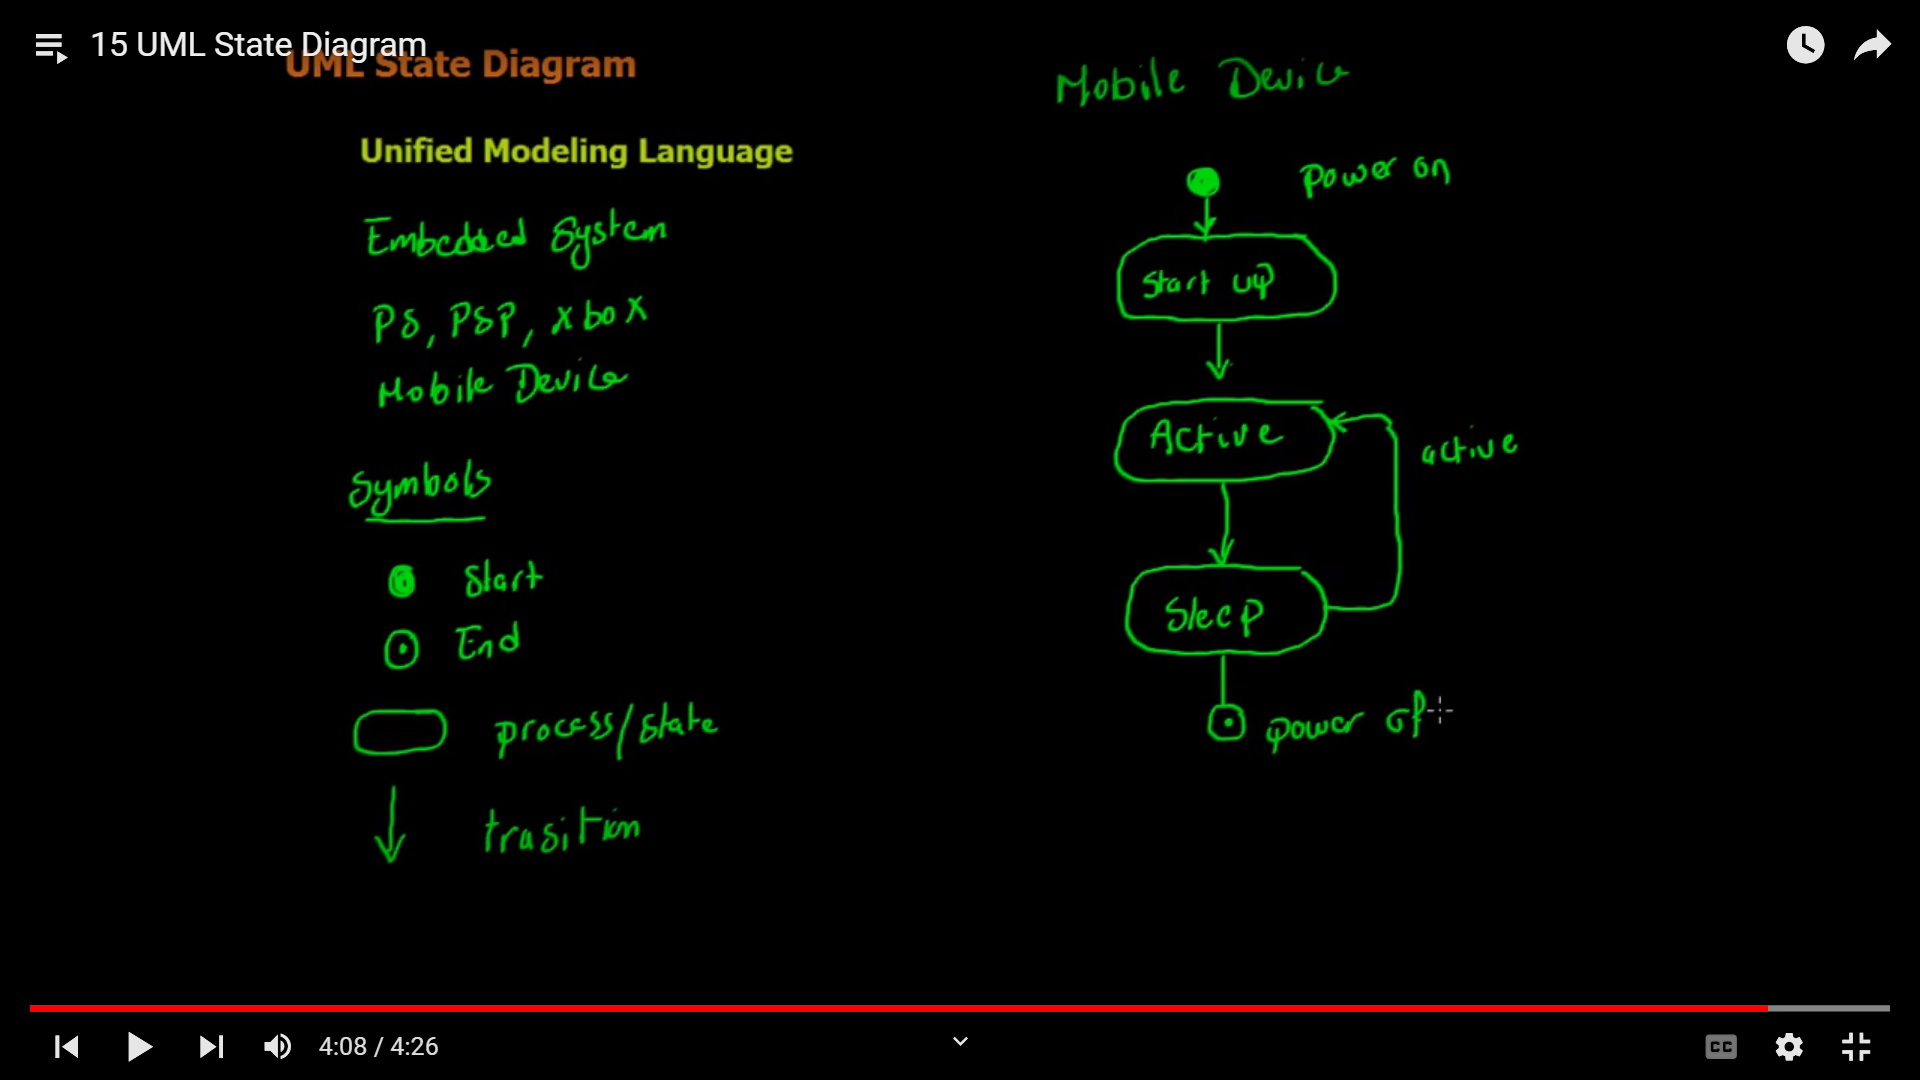 15 UML State Diagram
UML State Diagram
Unified Modeling Language
Embedded System
PS, PSP, xbox
Mobile Device
Symbols
Start
End
process/state
trasition
Mobile Device
Power on
Start up
Active
active
Sleep
power of
4:08 / 4:26
CC